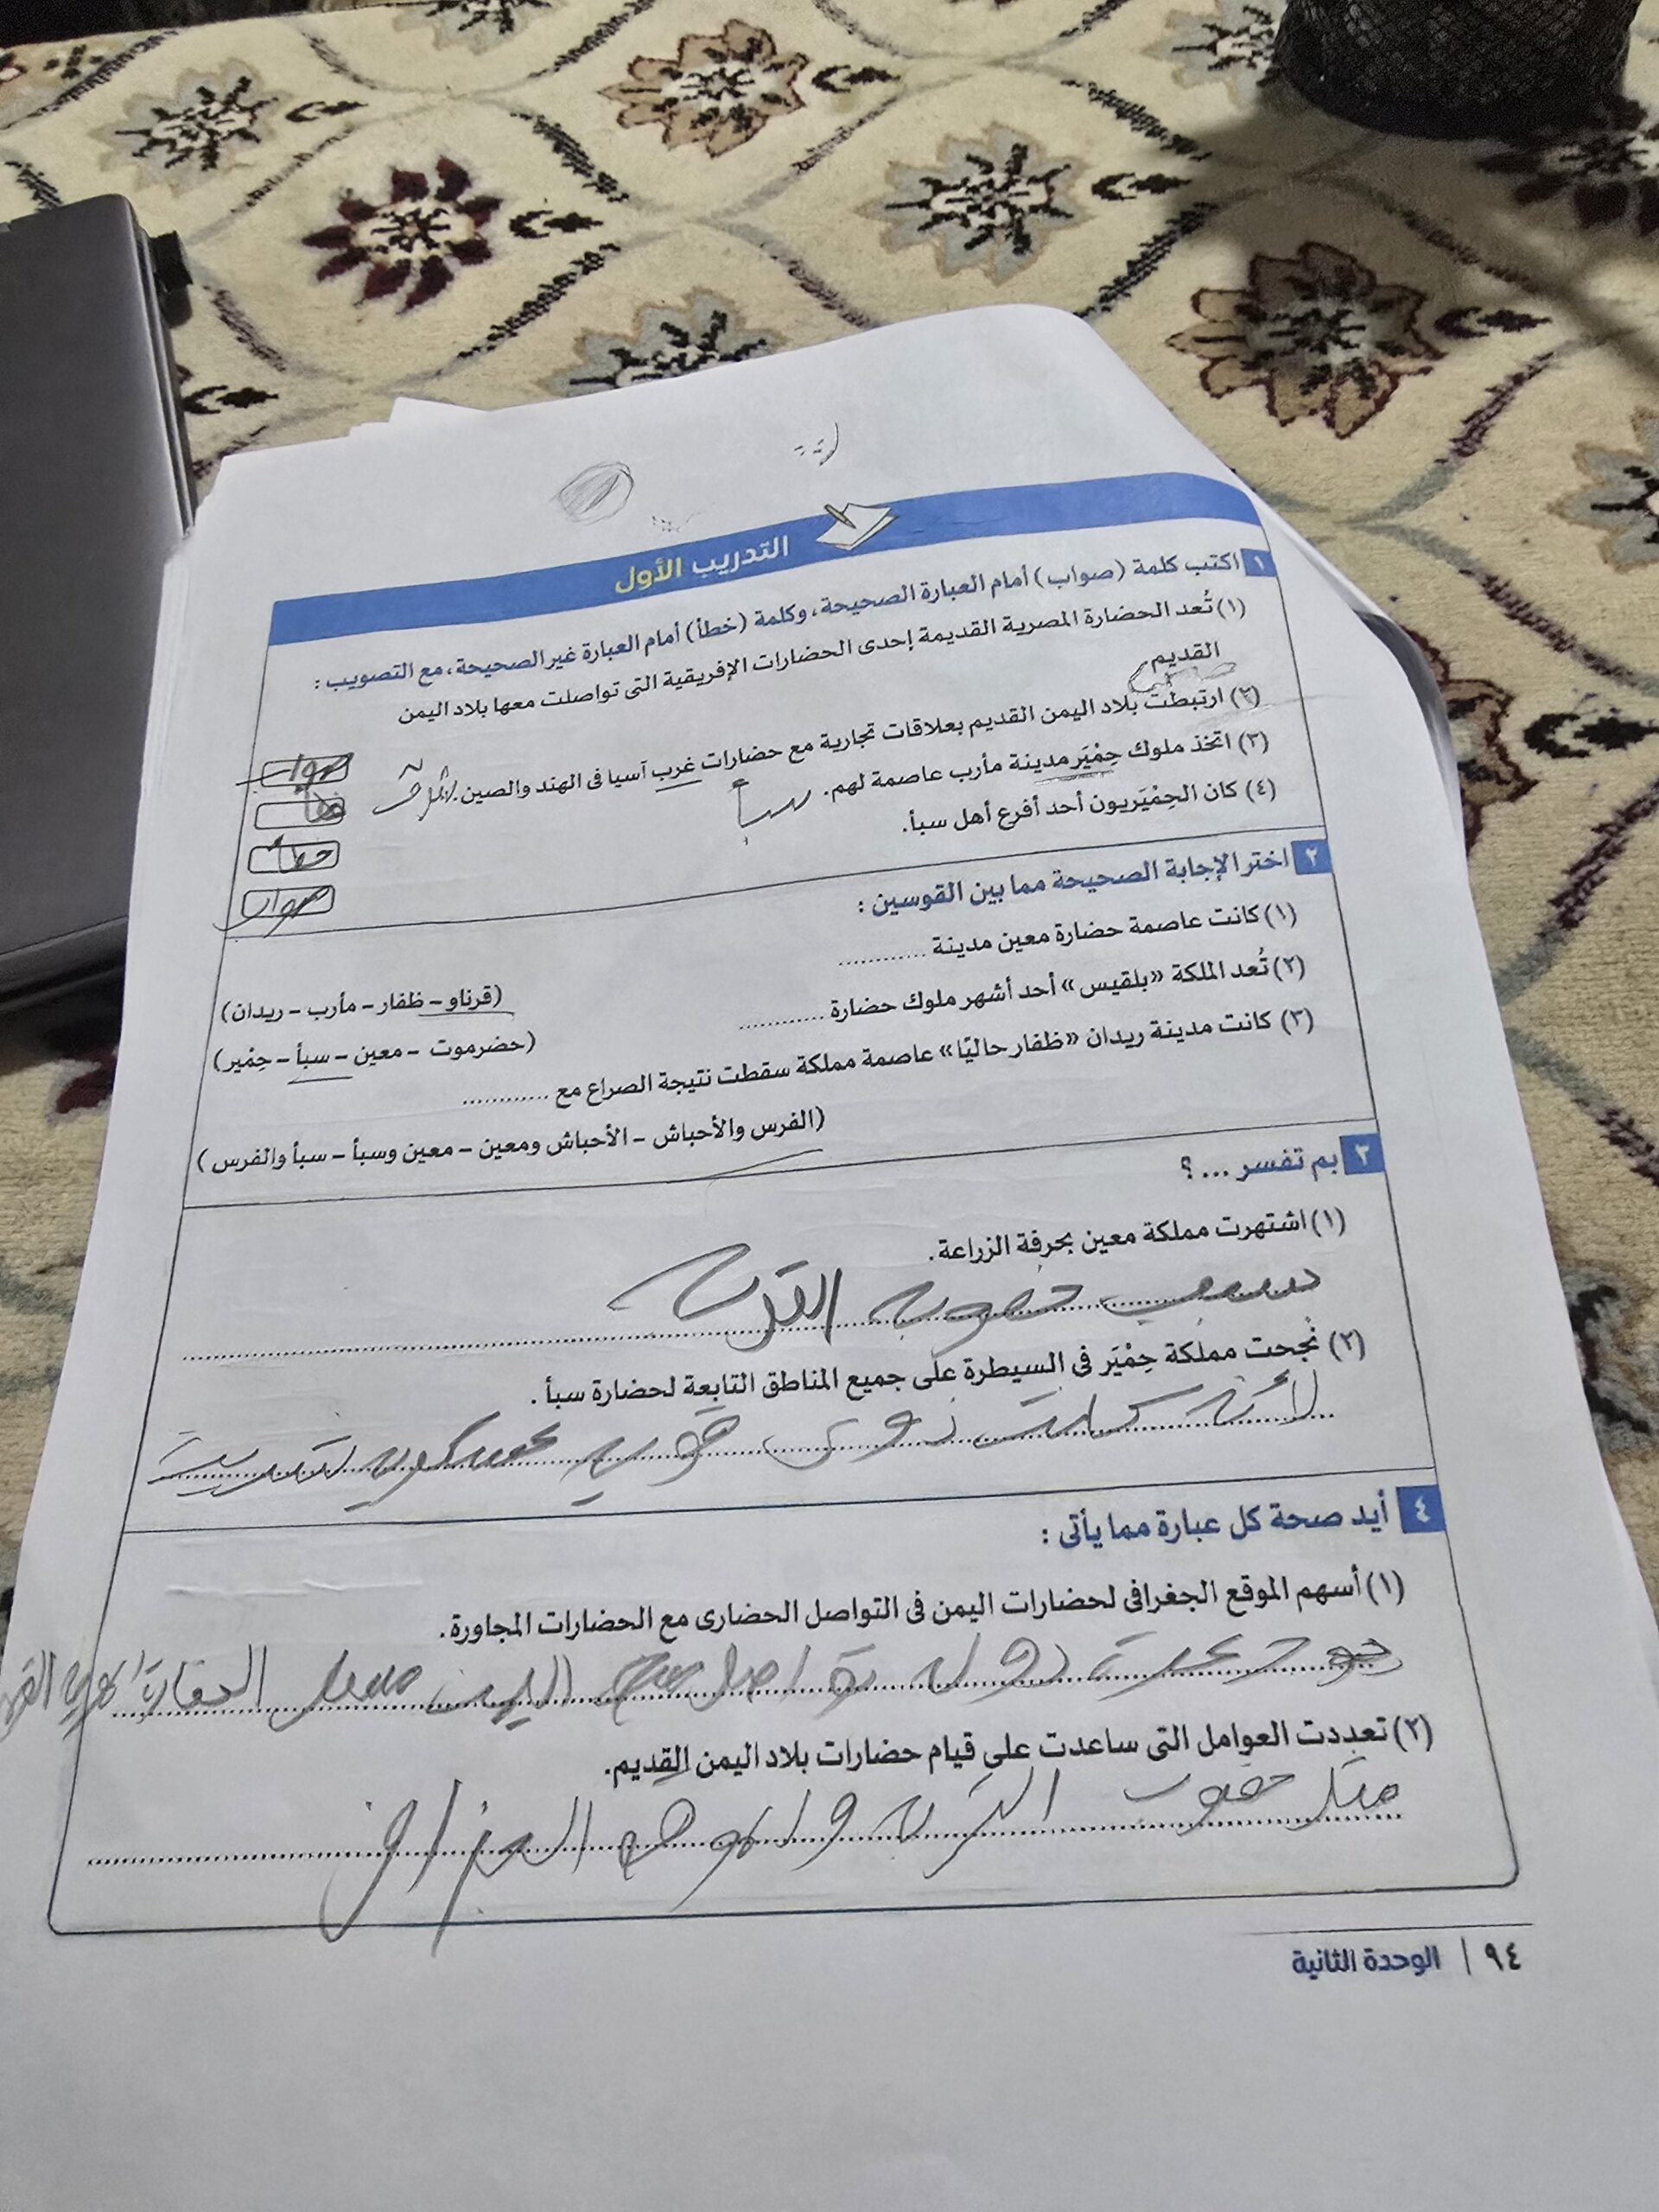 التدريب الأول
١ اكتب كلمة (صواب) أمام العبارة الصحيحة، وكلمة (خطأ) أمام العبارة غير الصحيحة، مع التصويب :
(١) تُعد الحضارة المصرية القديمة إحدى الحضارات الإفريقية التى تواصلت معها بلاد اليمن
القديم.
صواب
(٢) ارتبطت بلاد اليمن القديم بعلاقات تجارية مع حضارات غرب آسيا فى الهند والصين.
خطأ
(٣) اتخذ ملوك حِمْيَر مدينة مأرب عاصمة لهم. سبأ
خطأ
(٤) كان الحِمْيَريون أحد أفرع أهل سبأ.
صواب
٢ اختر الإجابة الصحيحة مما بين القوسين :
(١) كانت عاصمة حضارة معين مدينة ............
(قرناو – ظفار – مأرب – ريدان)
(٢) تُعد الملكة «بلقيس» أحد أشهر ملوك حضارة ............
(حضرموت – معين – سبأ – حِمْير)
(٣) كانت مدينة ريدان «ظفار حاليًا» عاصمة مملكة سقطت نتيجة الصراع مع ............
(الفرس والأحباش – الأحباش ومعين – معين وسبأ – سبأ والفرس)
٣ بم تفسر ... ؟
(١) اشتهرت مملكة معين بحرفة الزراعة.
بسبب خصوبه
(٢) نجحت مملكة حِمْيَر فى السيطرة على جميع المناطق التابعة لحضارة سبأ.
لأنه كانت ذوى قوه عسكريه
٤ أيد صحة كل عبارة مما يأتى :
(١) أسهم الموقع الجغرافى لحضارات اليمن فى التواصل الحضارى مع الحضارات المجاورة.
اليمن
(٢) تعددت العوامل التى ساعدت على قيام حضارات بلاد اليمن القديم.
مثل خصوب التربه والموقع الجغرافى
٩٤ | الوحدة الثانية